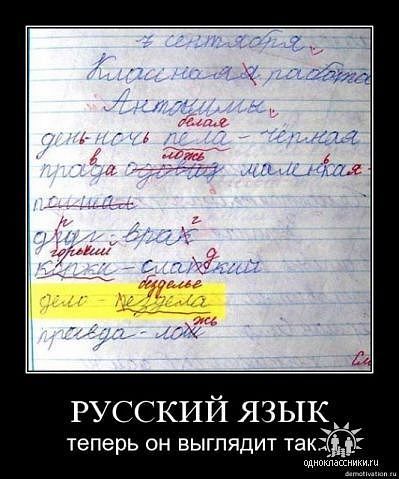 7 сентября.
Классная работа
Антонимы.
белая
день-ночь пела - чёрная
в ложь в
прада маленкая-
г г
друг - враг
горький д
коржи - слаткий
безделье
дело - пездела
жь
правда - лош
См
РУССКИЙ ЯЗЫК
теперь он выглядит так...
одноклассники.ru
demotivation.ru